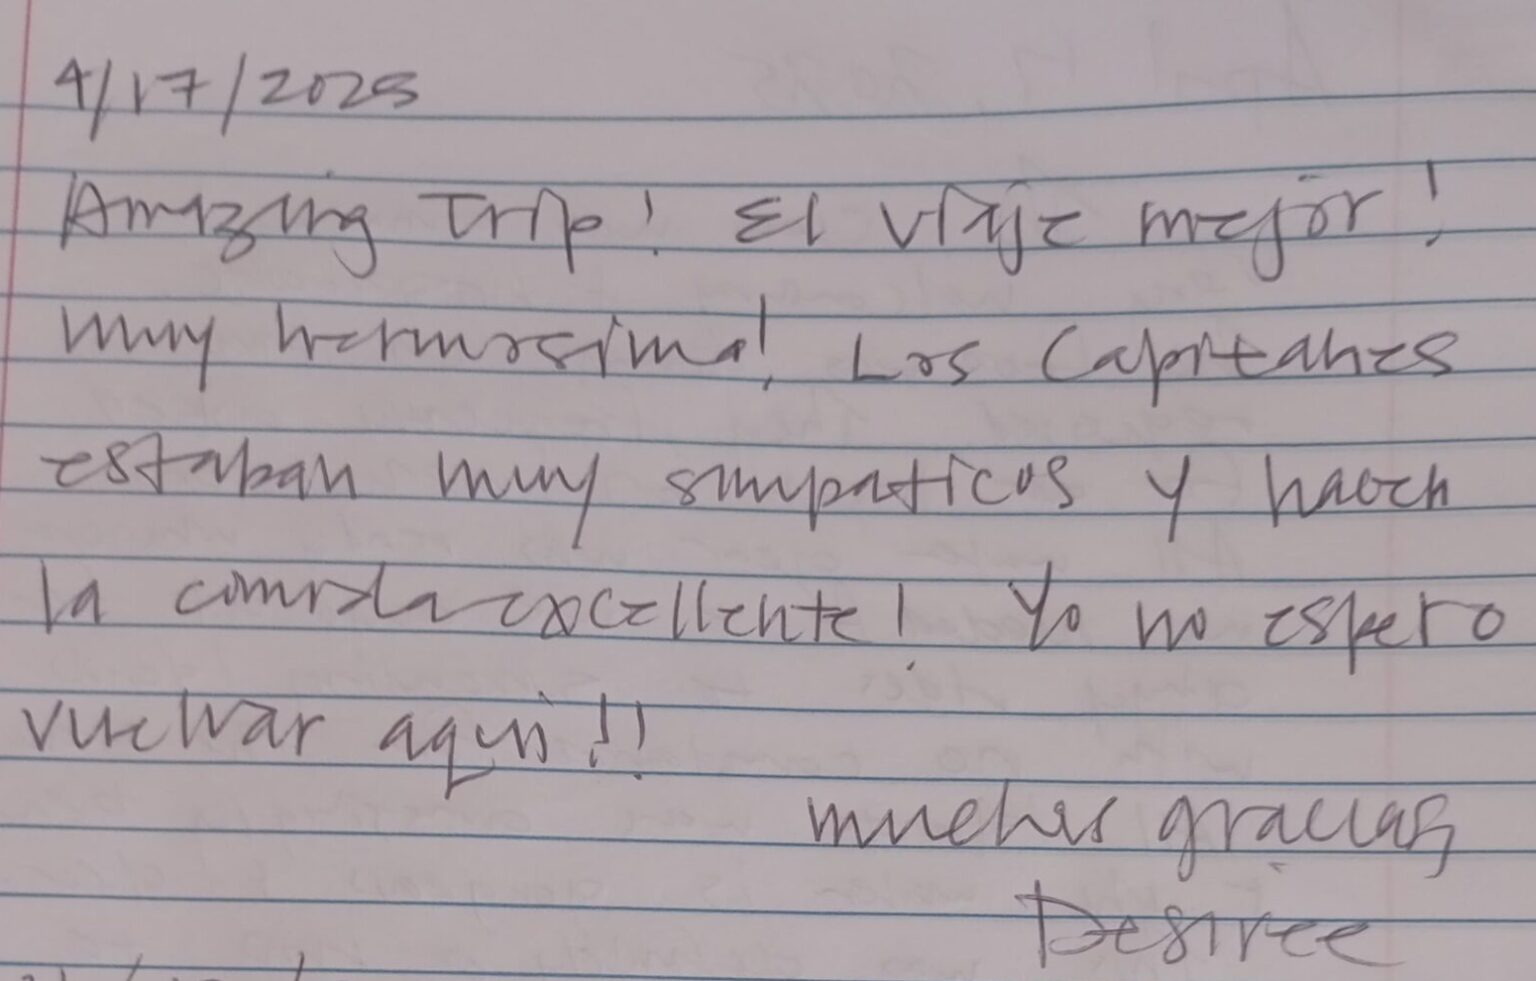 4/17/2025
Amazing Trip! El viaje mejor!
muy hermosima! Los Capitanes
estaban muy simpaticos y hacen
la comida excellente! Yo no espero
vuelvar aqui!!
muchas gracias
Desiree